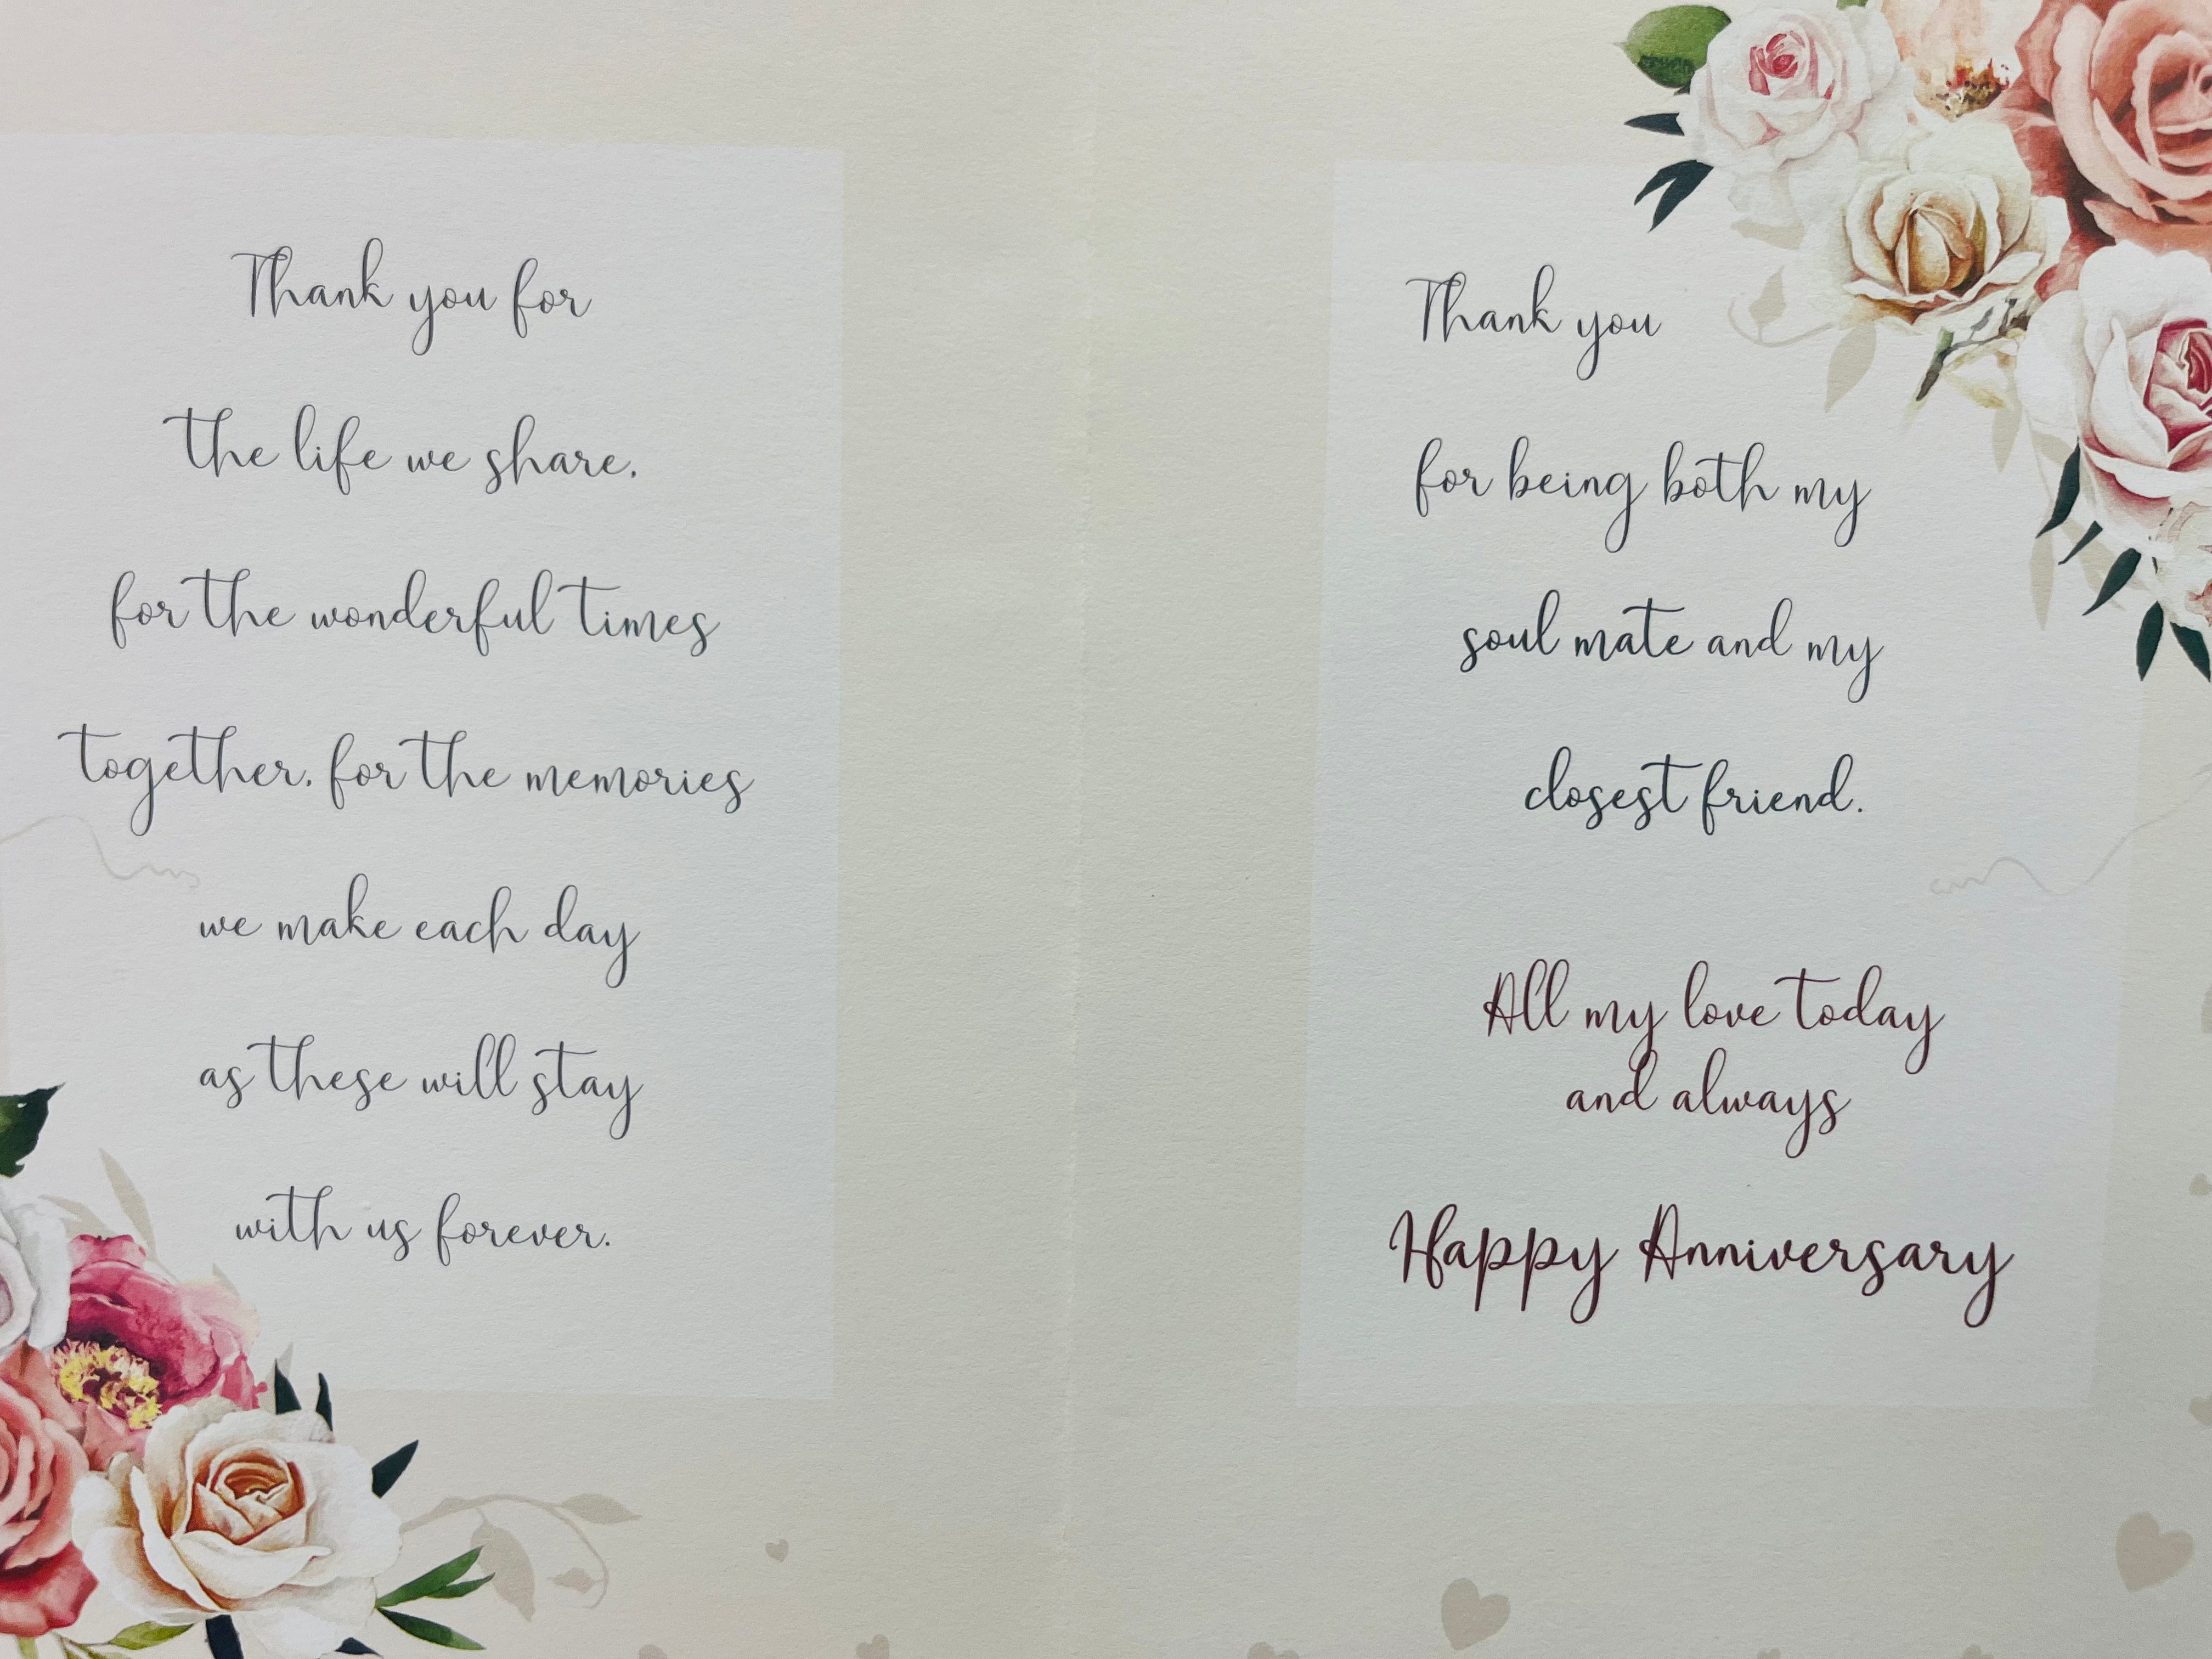 Thank you for
the life we share,
for the wonderful times
together, for the memories
we make each day
as these will stay
with us forever.
Thank you
for being both my
soul mate and my
closest friend.
All my love today
and always
Happy Anniversary